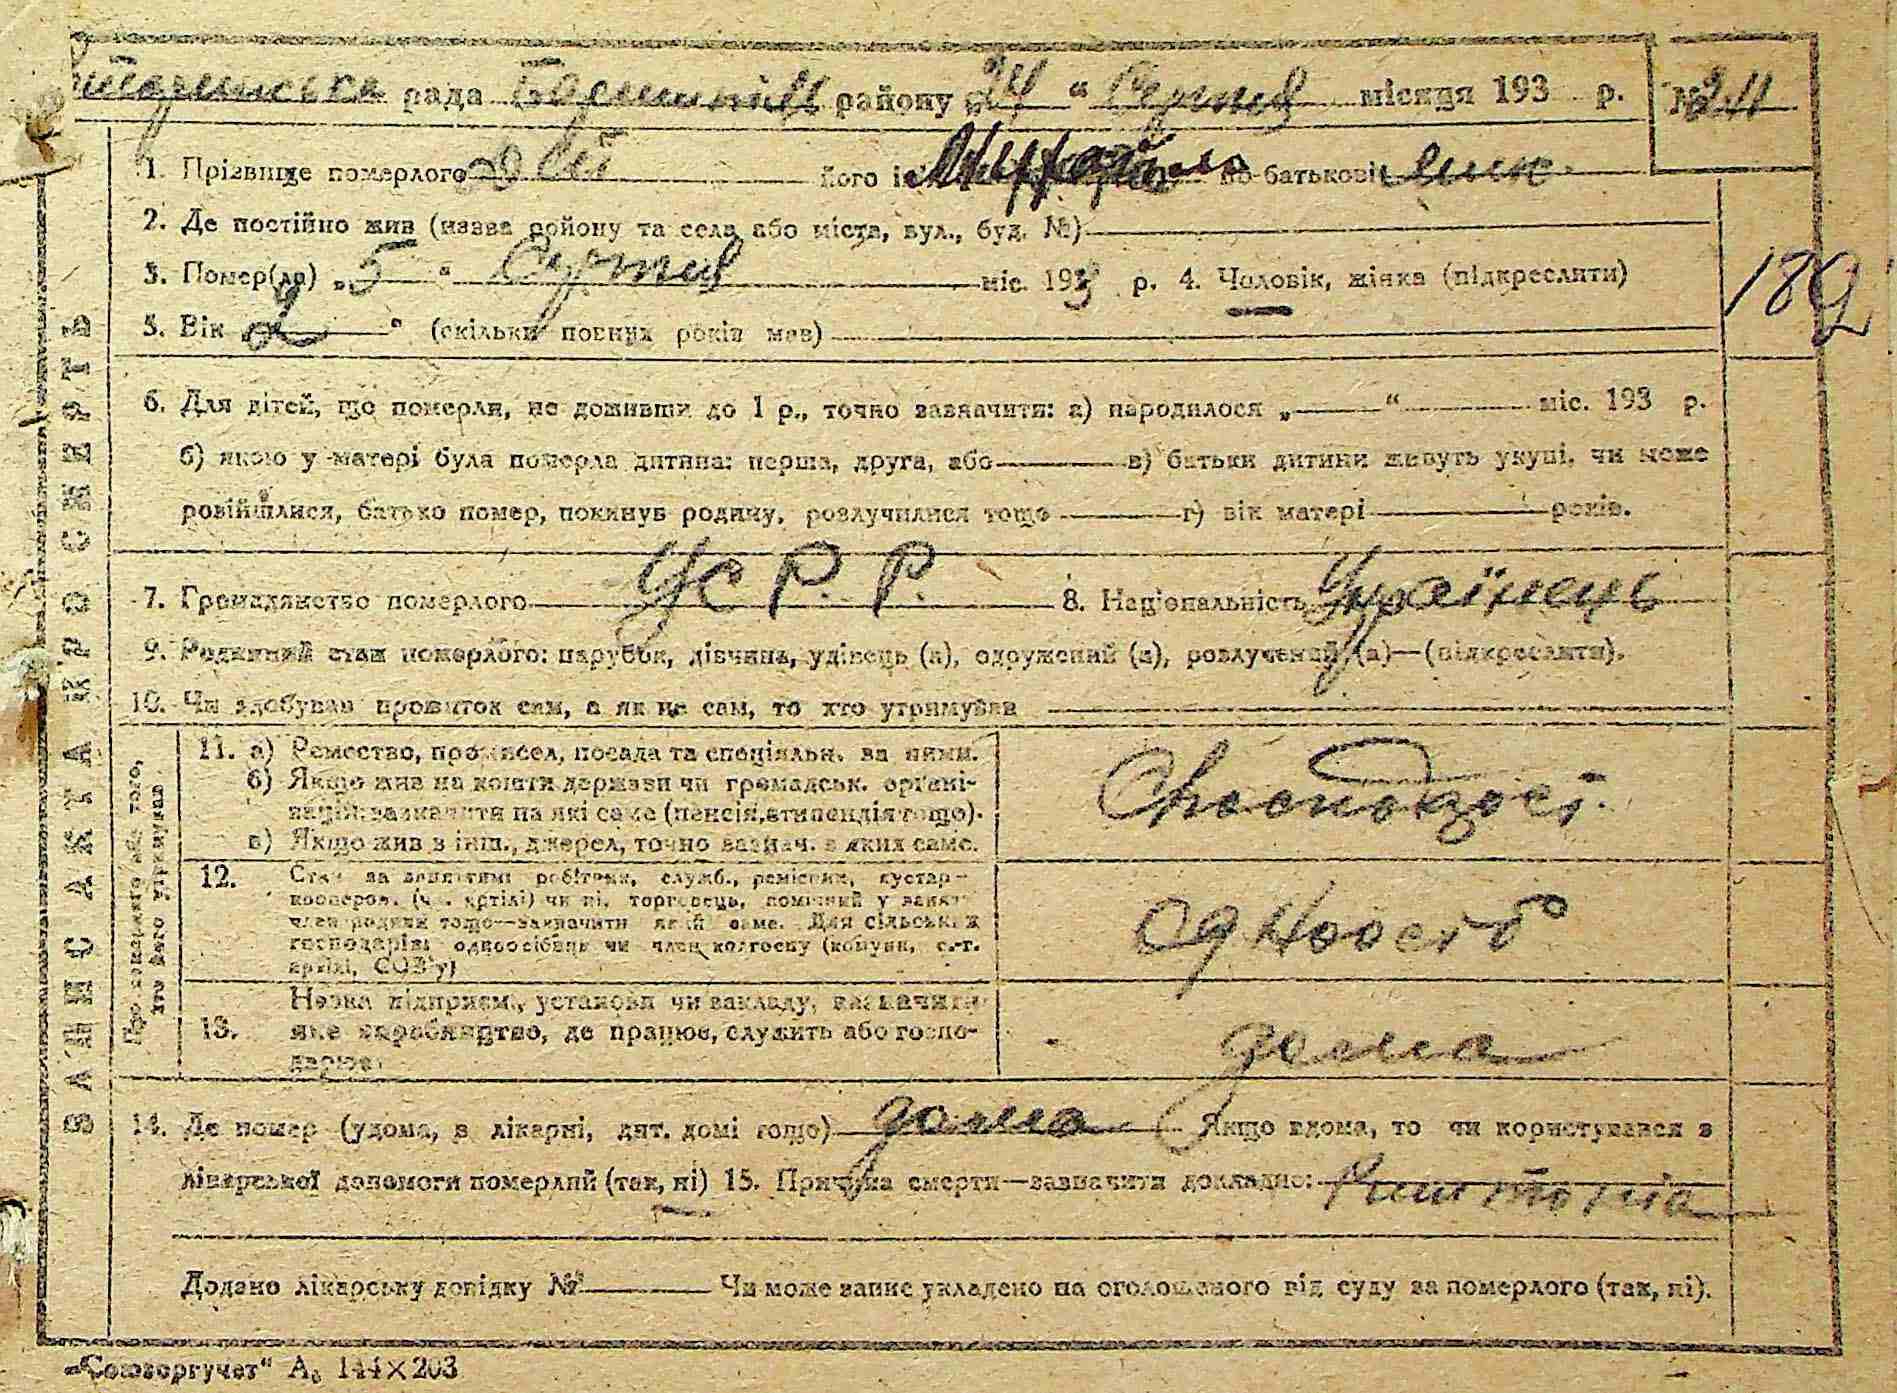 рада району „24“ Серпня місяця 193 р. №
1. Прізвище померлого його по-батькові
2. Де постійно жив (назва району та села або міста, вул., буд. №)
3. Помер(ла) „5“ Серпня міс. 193 р. 4. Чоловік, жінка (підкреслити)
189
5. Вік 2 “ (скільки повних років мав)
6. Для дітей, що померли, не доживши до 1 р., точно зазначити: а) народилося „ “ міс. 193 р.
б) якою у матері була померла дитина: перша, друга, або в) батьки дитини живуть укупі, чи може
розійшлися, батько помер, покинув родину, розлучилися тощо г) вік матері років.
7. Громадянство померлого УСРР. 8. Національність Українець
9. Родинний стан померлого: парубок, дівчина, удівець (а), одружений (а), розлучений (а)—(підкреслити).
10. Чи здобував прожиток сам, а як не сам, то хто утримував
ЗАПИС АКТА ПРО СМЕРТЬ
Про померлого або того,
хто його утримував
11. а) Ремество, промисел, посада та спеціяльн. за ними.
б) Якщо жив на кошти держави чи громадськ. органі-
зацій, зазначити на які саме (пенсія, стипендія тощо).
в) Якщо жив з інш., джерел, точно зазнач. з яких саме.
12. Стан за заняттям: робітник, служб., ремісник, кустар-
кооперов. (чл. артілі) чи ні, торговець, помічний у занят.
член родини тощо—зазначити який саме. Для сільських
господарів: одноосібник чи член колгоспу (комуни, с.-г.
артілі, СОЗ'у)
Одноосіб
13. Назва підприєм., установи чи закладу, зазначити
яке виробництво, де працює, служить або госпо-
дарює.
дома
14. Де помер (удома, в лікарні, дит. домі тощо) дома Якщо вдома, то чи користувався з
лікарської допомоги померлий (так, ні) 15. Причина смерти—зазначити докладно:
Додано лікарську довідку № Чи може запис укладено на оголошеного від суду за померлого (так, ні).
„Союзоргучет“ А₅ 144×203